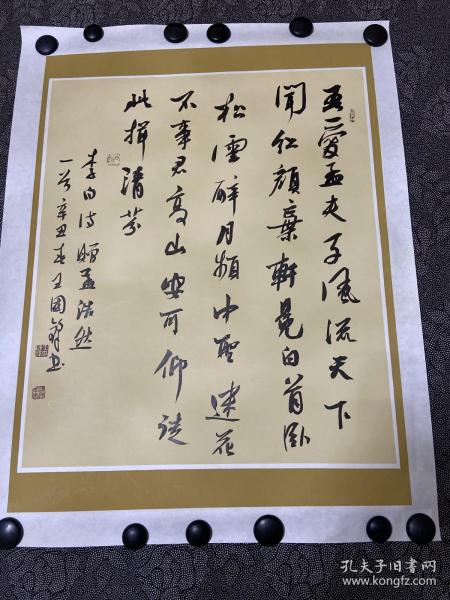 吾爱孟夫子风流天下
闻红颜弃轩冕白首卧
松云醉月频中圣迷花
不事君高山安可仰徒
此揖清芬
李白诗赠孟浩然
一首辛丑春王国锋书
孔夫子旧书网
www.kongfz.com